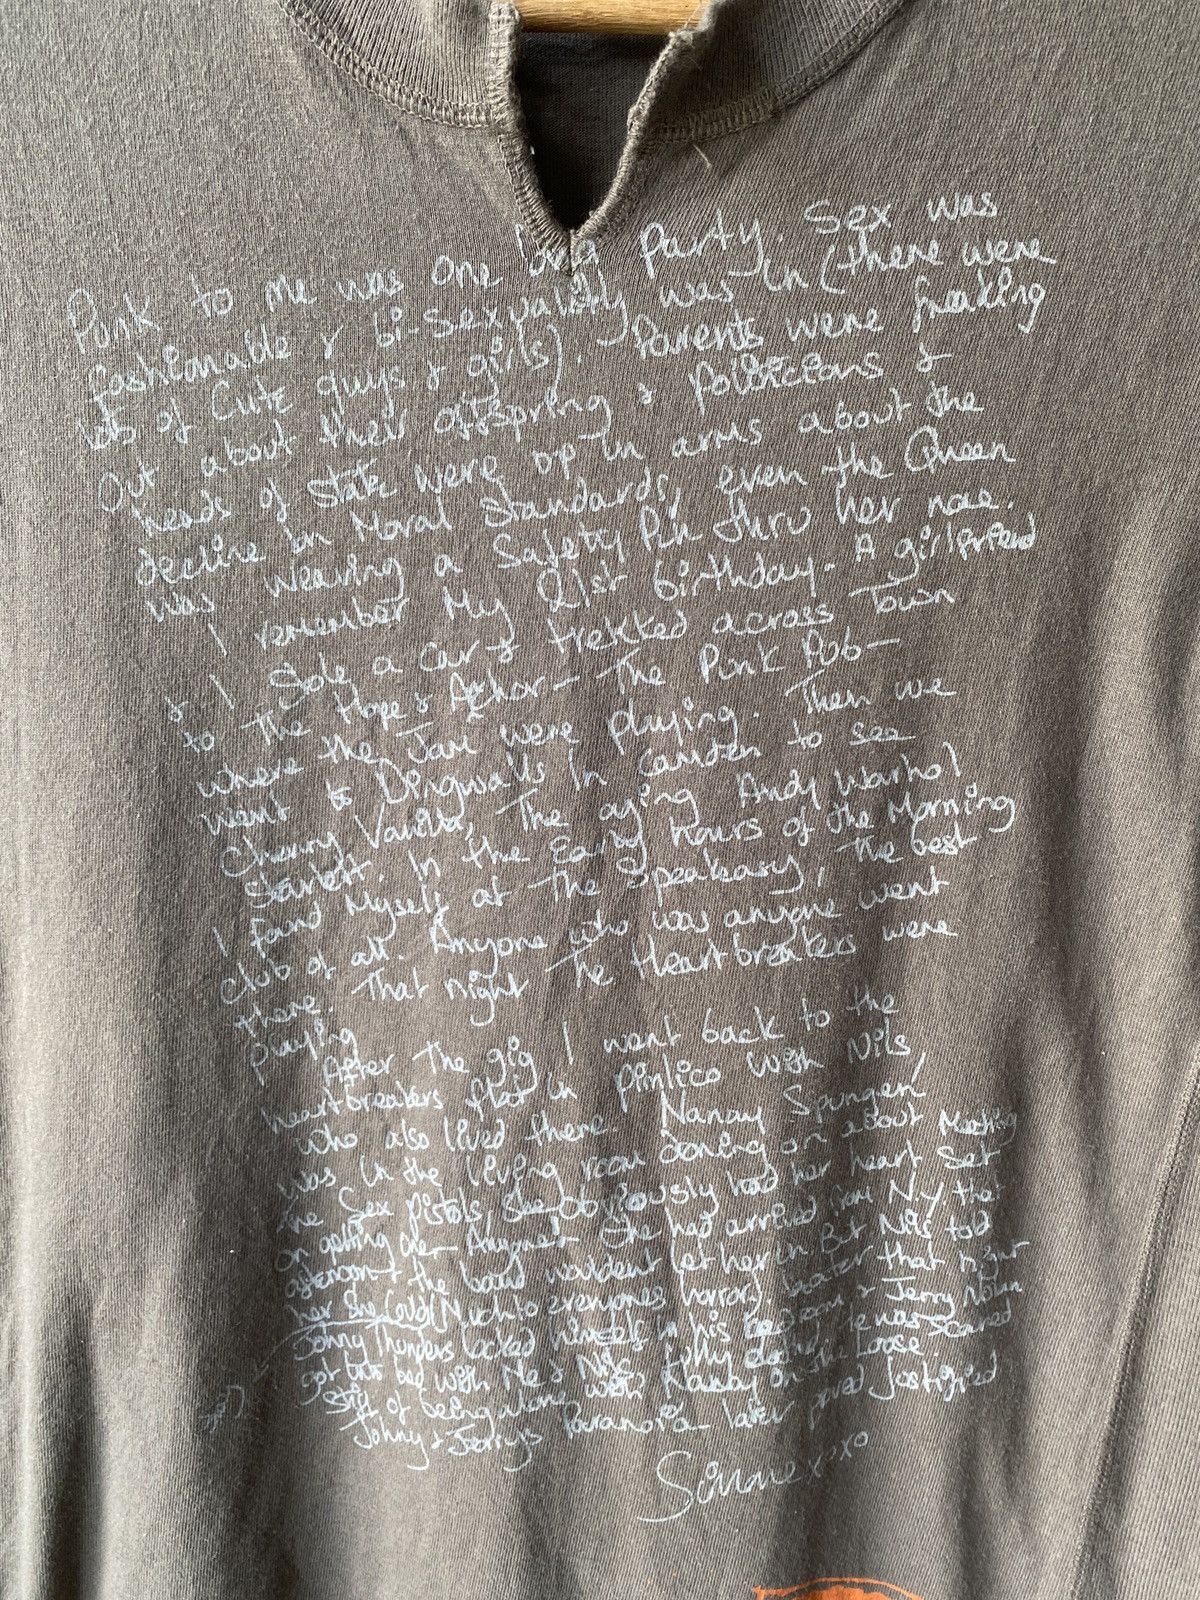 Punk to me was one big Party. Sex was
fashionable & bi-sexuality was in (there were
lots of Cute guys & girls). Parents were freaking
Out about their offspring & Politicians &
heads of State were up in arms about the
decline in Moral Standards, even the Queen
was wearing a Safety Pin thru her nose.
I remember My 21st birthday. A girlfriend
& I Stole a Car & trekked across Town
to The Hope & Achor - The Punk Pub -
where the Jam were playing. Then we
went to Dingwalls in Camden to see
Cherry Vanilla, The aging Andy Warhol
starlett. In the Early Hours of the Morning
I found Myself at The Speakeasy, The best
club of all. Anyone who was anyone went
there. That night The Heartbreakers were
playing
After The gig I went back to the
heartbreakers flat in Pimlico with Nils,
who also lived there Nancy Spungen,
was in the living room droning on about Meeting
the Sex Pistols, She Obviously had her heart set
on getting one - Anyone! She had arrived from N.Y that
afternoon & the band wouldent let her in. But Nils told
her She Could (Much to everyones horror). Later that night
Jonny Thunders locked himself in his bedroom & Jerry Nolan
got into bed with Me & Nils fully clothed. He was Scared
stiff of being alone with Nancy on the Loose.
Johny & Jerry's Paranoia later proved Justified
Simone xoxo